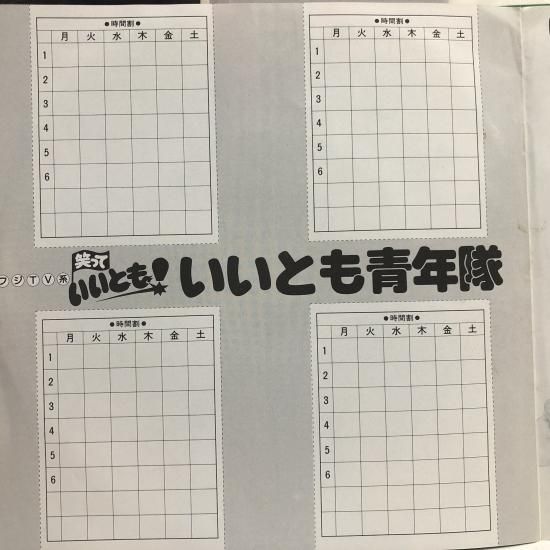 ●時間割●
月 火 水 木 金 土
1
2
3
4
5
6
●時間割●
月 火 水 木 金 土
1
2
3
4
5
6
フジTV系 笑っていいとも! いいとも青年隊
●時間割●
月 火 水 木 金 土
1
2
3
4
5
6
●時間割●
月 火 水 木 金 土
1
2
3
4
5
6